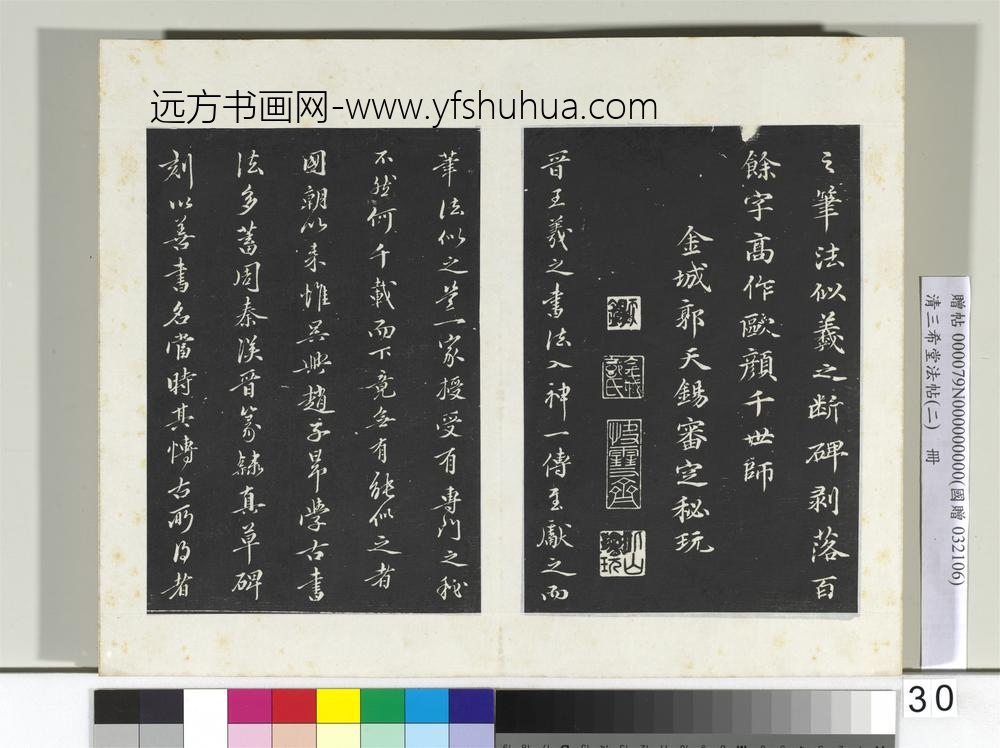 远方书画网-www.yfshuhua.com
之筆法似羲之断碑剥落百
餘字高作歐顔千世師
金城郭天錫審定秘玩
晉王羲之書法入神一傳至獻之而
筆法似之豈一家授受有專門之秘
不然何千載而下竟無有能似之者
國朝以来惟吴興趙子昂學古書
法多蓄周秦漢晉篆隸真草碑
刻以善書名當時其慱古所得者
贈帖 000079N000000000(國贈 032106)
清三希堂法帖(二) 冊
30